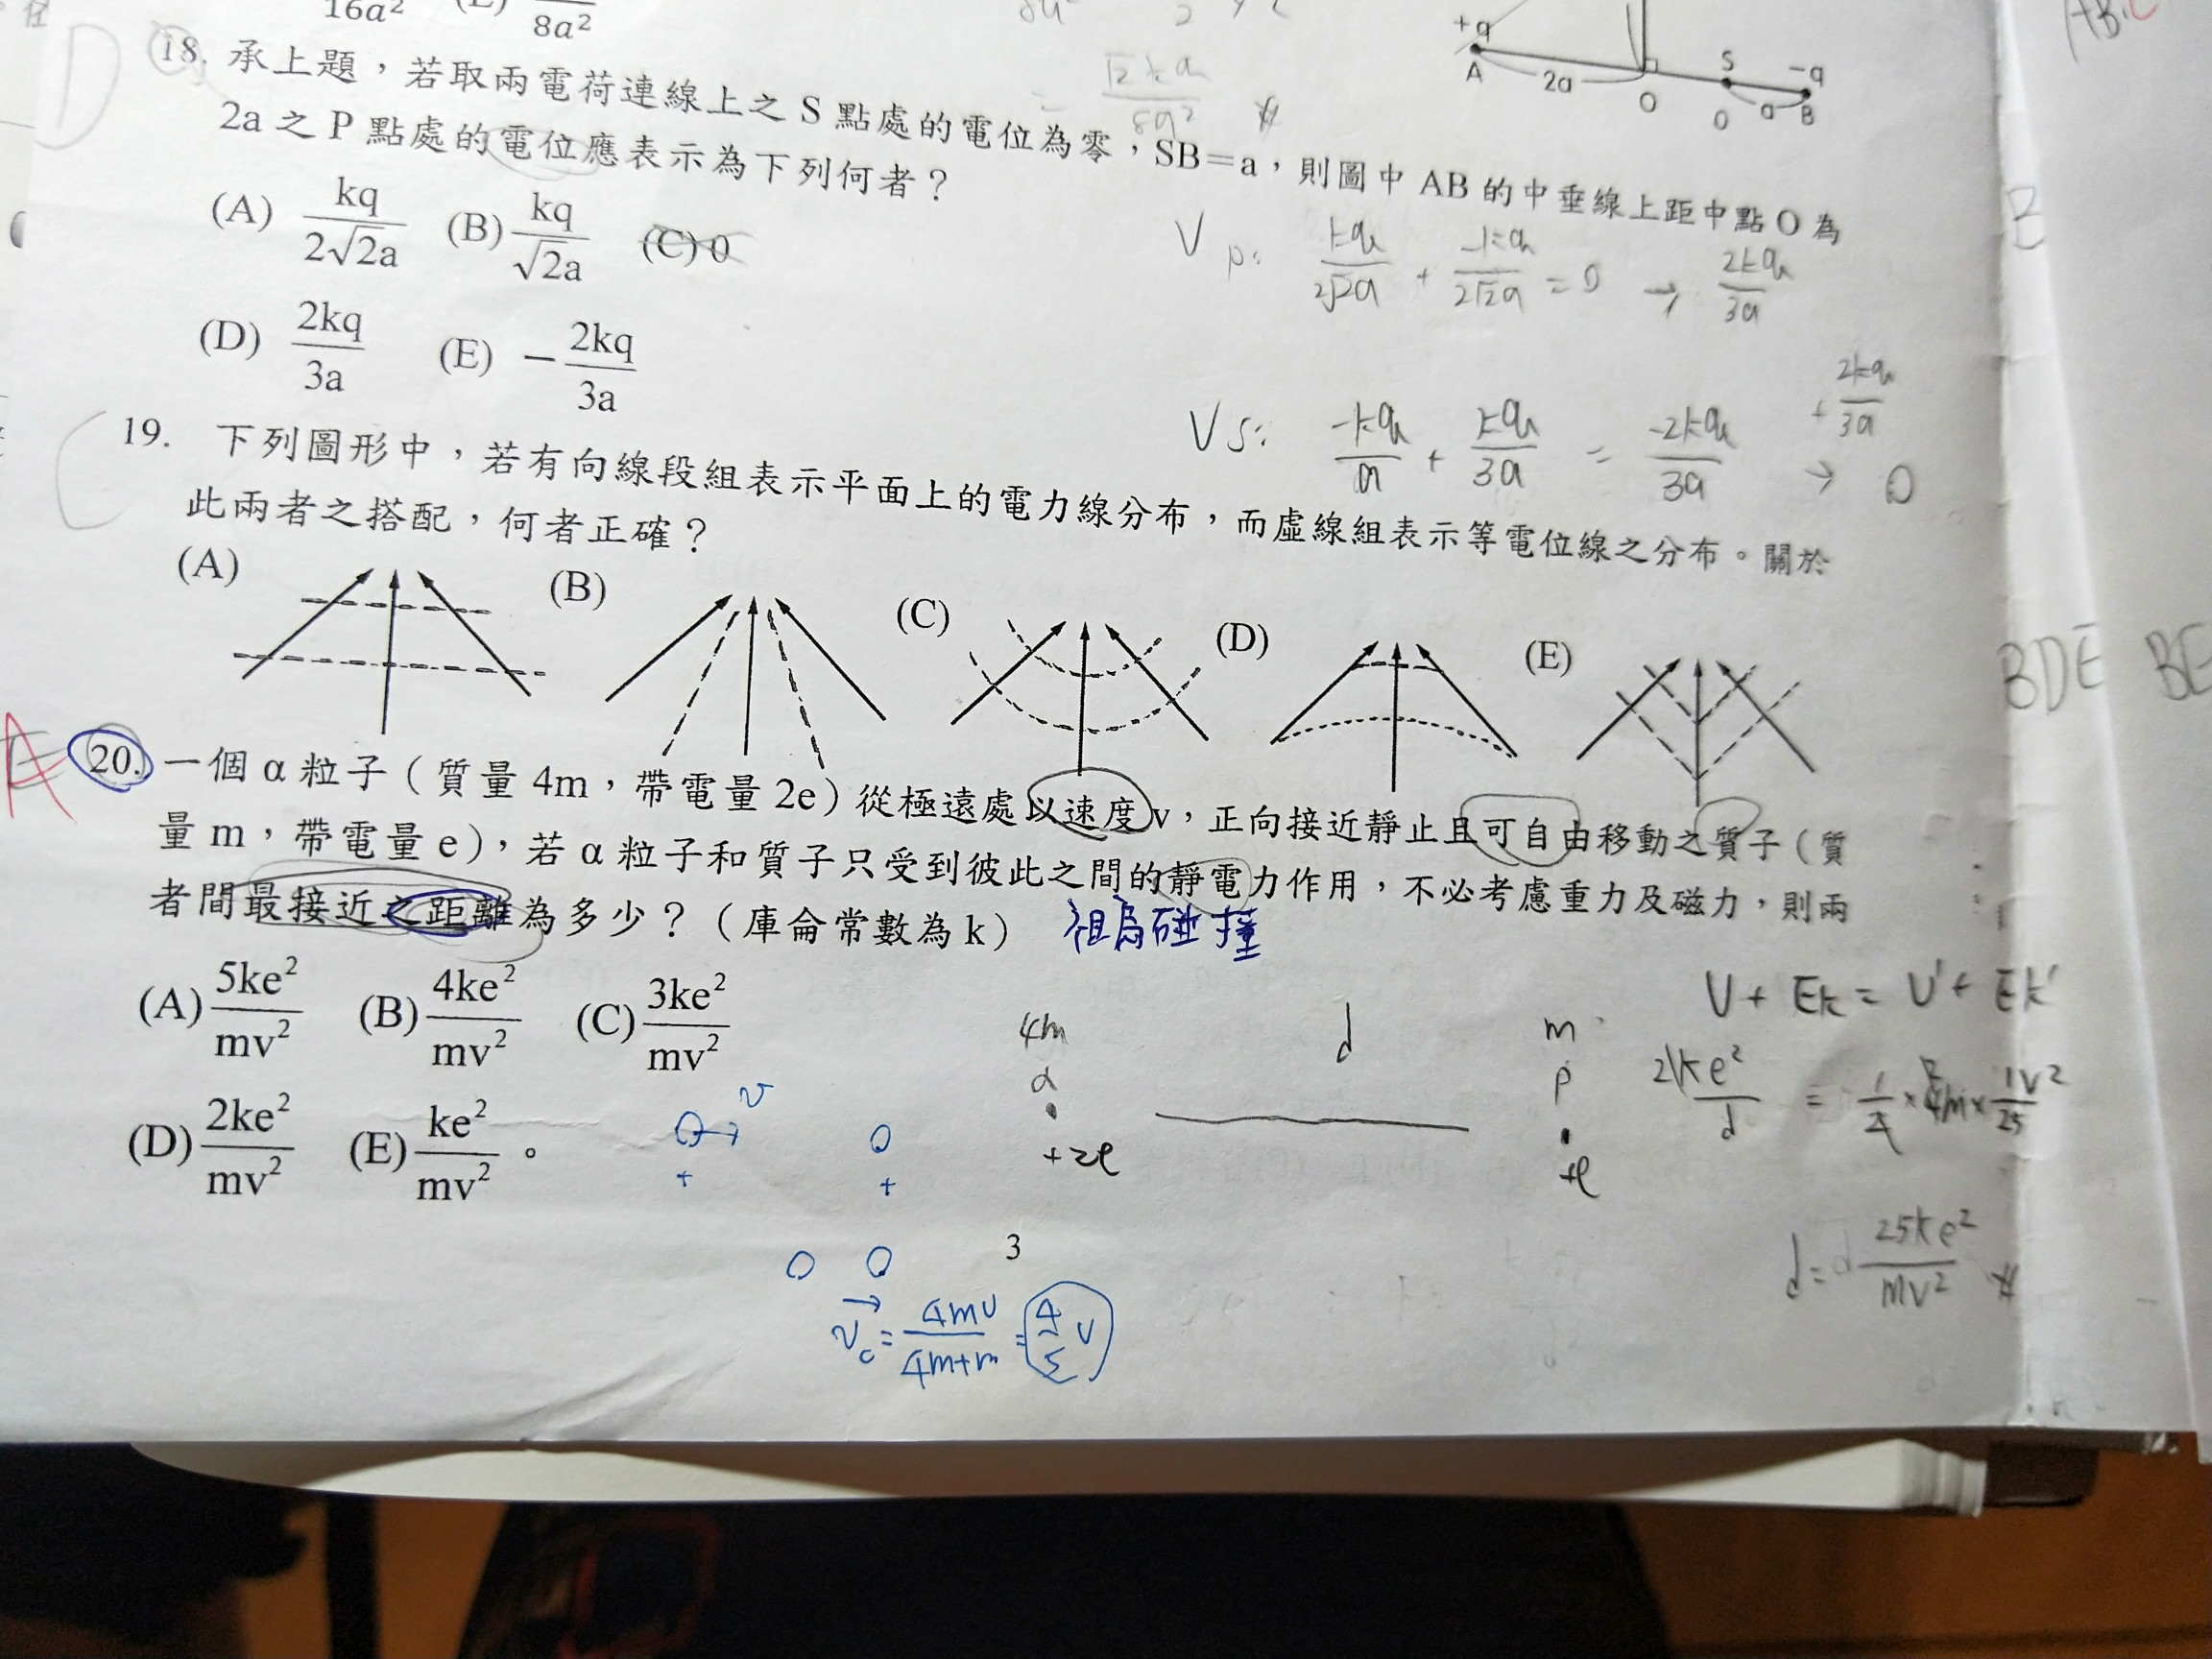 16a² (E) 8a²
+q
A 2a O S a -q B
18. 承上題，若取兩電荷連線上之 S 點處的電位為零，SB=a，則圖中 AB 的中垂線上距中點 O 為
2a 之 P 點處的電位應表示為下列何者？
(A) kq/2√2a (B) kq/√2a (C) 0
(D) 2kq/3a (E) −2kq/3a
Vp: kq/2√2a + -kq/2√2a = 0 → 2kq/3a
Vs: -kq/a + kq/3a = -2kq/3a + 2kq/3a → 0
19. 下列圖形中，若有向線段組表示平面上的電力線分布，而虛線組表示等電位線之分布。關於
此兩者之搭配，何者正確？
(A) (B) (C) (D) (E)
20. 一個 α 粒子（質量 4m，帶電量 2e）從極遠處以速度 v，正向接近靜止且可自由移動之質子（質
量 m，帶電量 e），若 α 粒子和質子只受到彼此之間的靜電力作用，不必考慮重力及磁力，則兩
者間最接近之距離為多少？（庫侖常數為 k）
(A) 5ke²/mv² (B) 4ke²/mv² (C) 3ke²/mv²
(D) 2ke²/mv² (E) ke²/mv²。
4m d m
α p
+2e +e
U + Ek = U' + Ek'
d = 25ke²/mv²
v
+ +
vc = 4mv/4m+m = 4/5 v
3
D
C
BDE BE